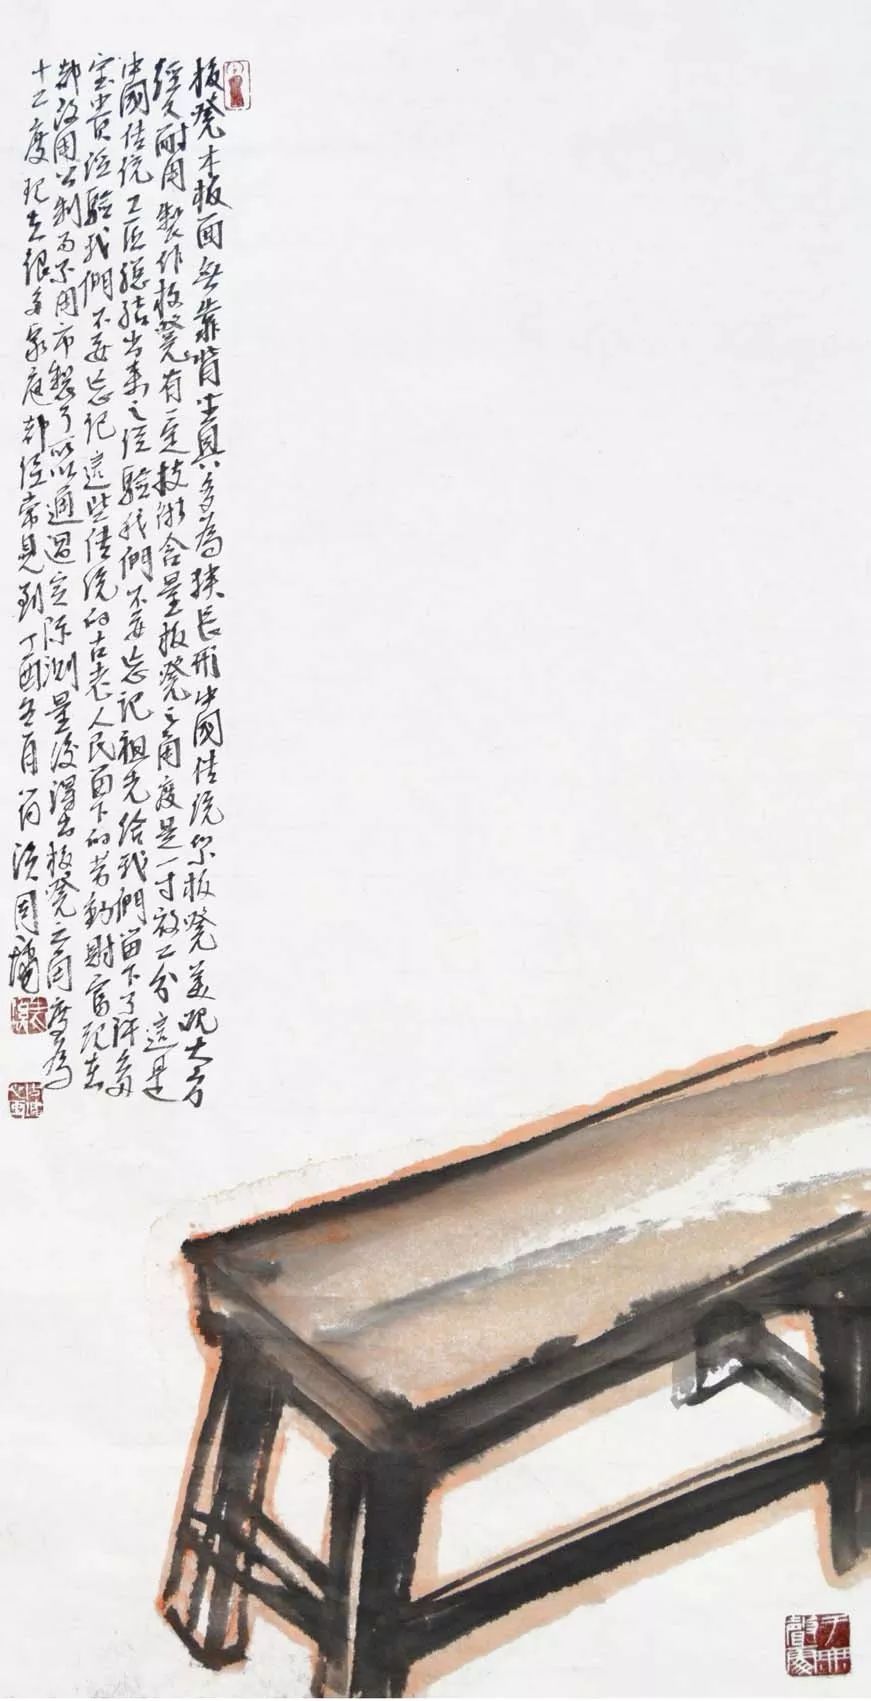 板凳木板面無靠背坐具多為狹長形中國传统条板凳美观大方
經久耐用製作板凳有一定技術含量板凳之角度是一寸放二分這是
中國传统工匠總結出来之经驗我們不要忘記祖先給我們留下了許多
宝貴经驗我們不要忘記這些传统的古老人民留下的劳動財富現在
都改用公制而不用市製了所以通過实际測量後得出板凳之角度為
十二度現在很多家庭都经常見到丁酉冬月
于無聲處